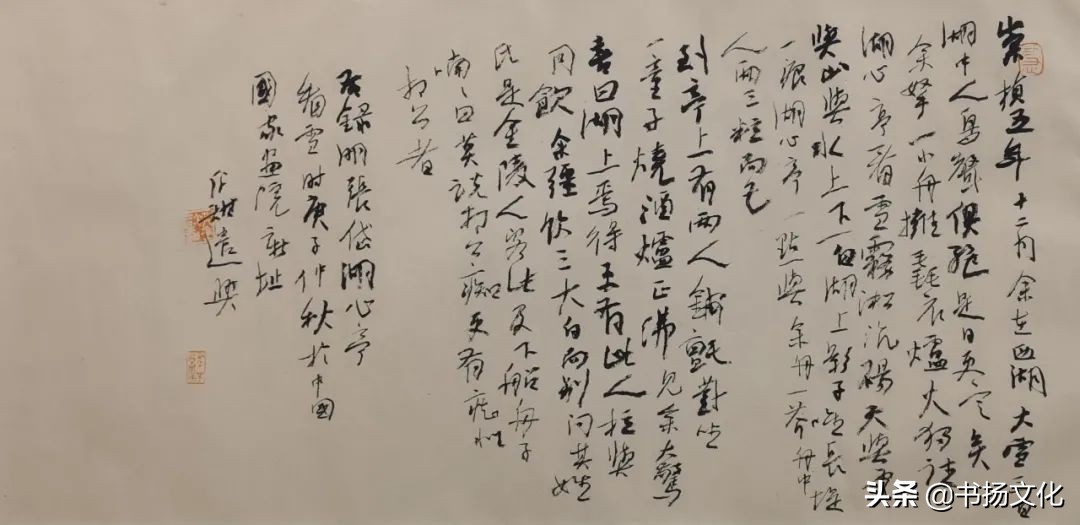 崇禎五年十二月余在西湖大雪三日
湖中人鳥聲俱絕是日更定矣
余拏一小舟擁毳衣爐火獨往
湖心亭看雪霧淞沆碭天與雲
與山與水上下一白湖上影子惟長堤
一痕湖心亭一點與余舟一芥舟中
人兩三粒而已
到亭上有兩人鋪氈對坐
一童子燒酒爐正沸見余大驚
喜曰湖上焉得更有此人拉與
同飲余彊飲三大白而別問其姓
氏是金陵人客此及下船舟子
喃〻曰莫說相公癡更有癡似
相公者
右錄明張岱湖心亭
看雪時庚子仲秋於中國
國家畫院新址
遣興
头条 @书扬文化